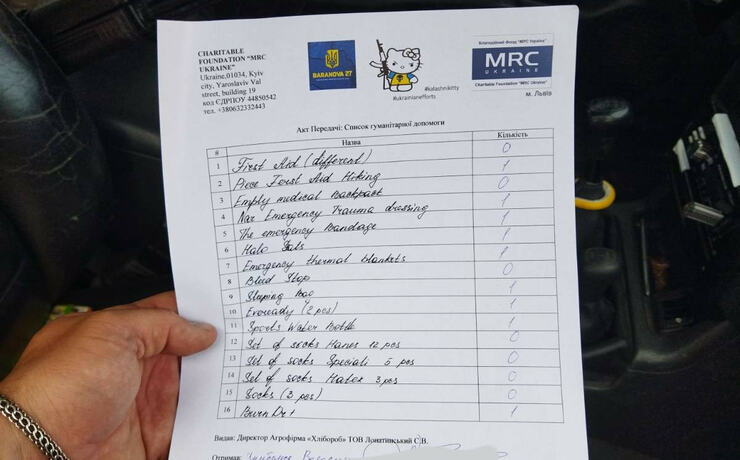 CHARITABLE
FOUNDATION "MRC
UKRAINE"
Ukraine,01034, Kyiv
city, Yaroslaviv Val
street, building 19
код ЄДРПОУ 44850542
тел. +380632332443
BARANOVA 27
#kalashnikitty
#ukrainianefforts
Благодійний Фонд "MRC Україна"
MRC
UKRAINE
Charitable Foundation "MRC Ukraine"
м. Львів
Акт Передачі: Список гуманітарної допомоги
# Назва Кількість
1 First Aid (different) 0
2 First Aid Hiking 1
3 Empty medical Backpack 0
4 Nar Emergency Trauma dressing 1
5 The emergency Bandage 1
6 Halo 1
7 Emergency thermal blankets 1
8 Bleed Stop 0
9 Sleeping Bag 1
10 Eveready (2 pcs) 1
11 Sports Water Bottle 1
12 Set of socks Hanes 12 pcs 0
13 Set of socks Speciali 5 pcs 0
14 Set of socks 3 pcs 0
15 Socks (3 pcs) 0
16 Burn 1
Видав: Директор Агрофірма «Хлібороб» ТОВ Лонатинський С.В.
Отримав: